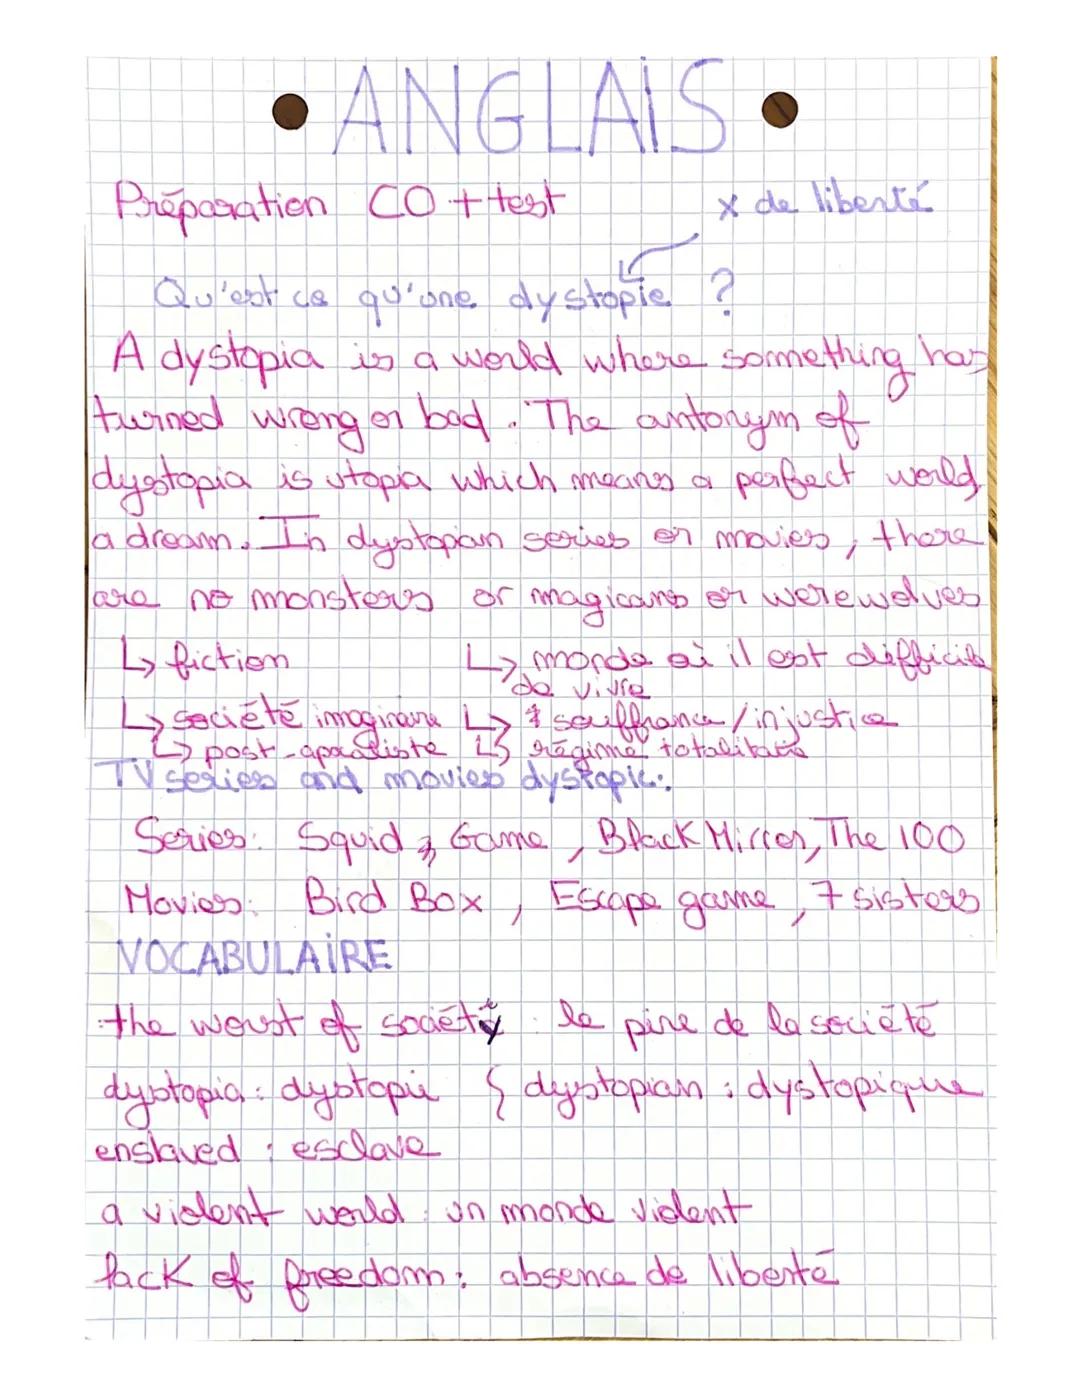 ANGLAIS
Préparation CO + test x de liberté
Qu'est ce qu'une dystopie ?
A dystopia is a world where something has
turned wrong or bad. The antonym of
dystopia is utopia which means a perfect world,
a dream. In dystopian series or movies, there
are no monsters or magicans or werewolves
↳ fiction ↳ monde où il est difficile
de vivre
↳ société imaginaire ↳ souffrance / injustice
↳ post-apocaliste ↳ régime totalitaire
TV series and movies dystopic:
Series: Squid Game, Black Mirror, The 100
Movies: Bird Box, Escape game, 7 sisters
VOCABULAIRE
the worst of society : le pire de la société
dystopia : dystopie { dystopian : dystopique
enslaved : esclave
a violent world : un monde violent
lack of freedom : absence de liberté